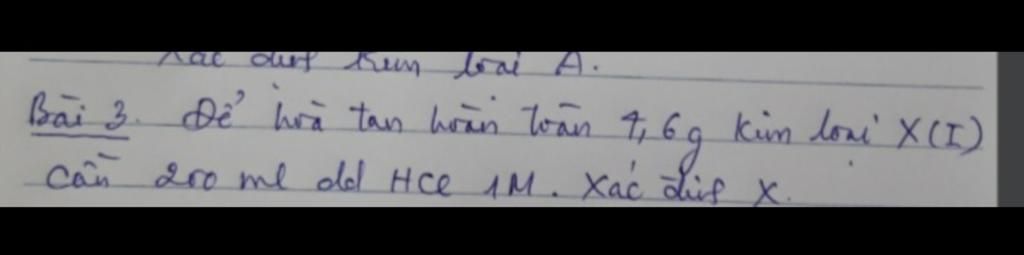 Xác định kim loại A.
Bài 3. Để hoà tan hoàn toàn 4,6g kim loại X(I)
cần 200 ml dd HCl 1M. Xác định X.